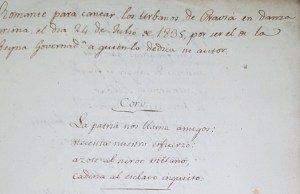 Romance para cantar los Urbanos de Pravia en danza
prima, el dia 24 de Julio de 1835, por ser el de la
Reyna Governad.ª a quien lo dedica su autor.
Coro
La patria nos llama amigos:
necesita nuestro esfuerzo:
azote al feroz villano;
cadena al esclavo inquieto.